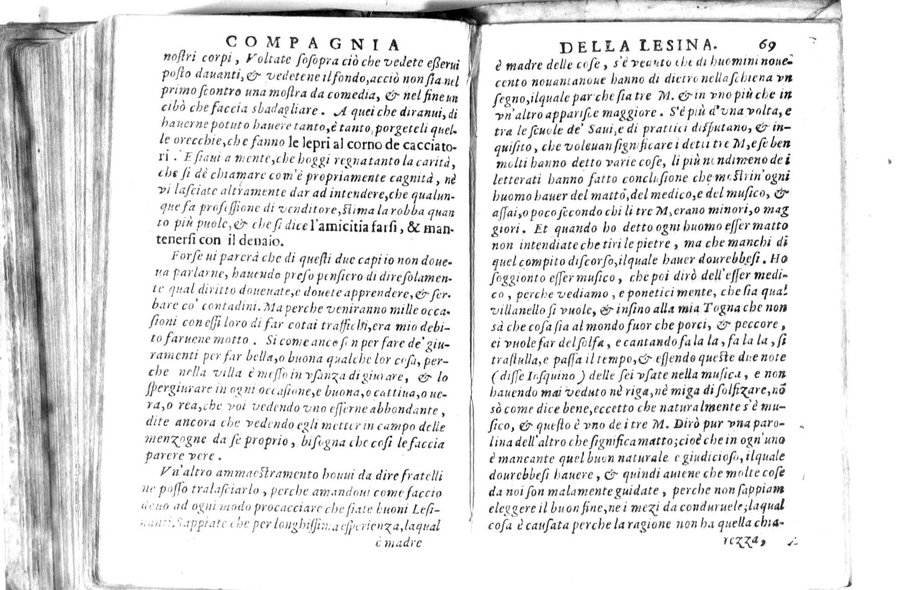 COMPAGNIA
nostri corpi, Voltate sosopra ciò che vedete eßerui
posto dauanti, & vedetene il fondo, acciò non sia nel
primo scontro una mostra da comedia, & nel fine un
cibò che faccia sbadagliare. A quei che diranui, di
hauerne potuto hauere tanto, è tanto, porgeteli quel-
le orecchie, che fanno le lepri al corno de cacciato-
ri. E siaui a mente, che hoggi regna tanto la carità,
che si dè chiamare com'è propriamente cagnità, nè
vi lasciate altramente dar ad intendere, che qualun-
que fa professione di venditore, stima la robba quan
to più puole, & che si dice l'amicitia farsi, & man-
tenersi con il denaio.
Forse ui parerà che di questi due capi io non doue-
ua parlarne, hauendo preso pensiero di dire solamen-
te qual diritto doueuate, e douete apprendere, & ser-
bare co' contadini. Ma perche veniranno mille occa-
sioni con essi loro di far cotai traffichi, era mio debi-
to faruene motto. Si come anco se n per fare de' giu-
ramenti per far bella, o buona qualche lor cosa, per-
che nella villa è messo in vsanza di giurare, & lo
spergiurare in ogni occasione, e buona, o cattiua, o ue-
ra, o rea, che voi vedendo vno esserne abbondante,
dite ancora che vedendo egli metter in campo delle
menzogne da se proprio, bisogna che così le faccia
parere vere.
Vn'altro ammaestramento houui da dire fratelli
ne posso tralasciarlo, perche amandoui come faccio
deuo ad ogni modo procacciare che siate buoni Lesi-
nanti. Sappiate che per longhissima esperienza, laqual
è madre
DELLA LESINA. 69
è madre delle cose, s'è veduto che di huomini noue-
cento nouantanoue hanno di dietro nella schiena vn
segno, ilquale par che sia tre M. & in vno più che in
vn'altro apparisce maggiore. S'è più d'vna volta, e
tra le scuole de' Saui, e di prattici disputano, & in-
quisito, che voleuan significare i detti tre M, e se ben
molti hanno detto varie cose, li più nondimeno de i
letterati hanno fatto conclusione che mostri n'ogni
huomo hauer del matto, del medico, e del musico, &
assai, o poco secondo chi li tre M, erano minori, o mag
giori. Et quando ho detto ogni huomo esser matto
non intendiate che tiri le pietre, ma che manchi di
quel compito discorso, ilquale hauer dourebbesi. Ho
soggionto esser musico, che poi dirò dell'esser medi-
co, perche vediamo, e ponetici mente, che sia qual
villanello si vuole, & insino alla mia Togna che non
sà che cosa sia al mondo fuor che porci, & peccore,
ei vuole far del solfa, e cantando fa la la, fa la la, si
trastulla, e passa il tempo, & essendo queste due note
(disse Iosquino) delle sei vsate nella musica, e non
hauendo mai veduto nè riga, nè miga di solfizare, nõ
sò come dice bene, eccetto che naturalmente s'è mu-
sico, & questo è vno de i tre M. Dirò pur vna paro-
lina dell'altro che significa matto; cioè che in ogn'uno
è mancante quel buon naturale e giudicioso, ilquale
dourebbesi hauere, & quindi auiene che molte cose
da noi son malamente guidate, perche non sappiam
eleggere il buon fine, ne i mezi da conduruele; laqual
cosa è causata perche la ragione non ha quella chia-
rezza,